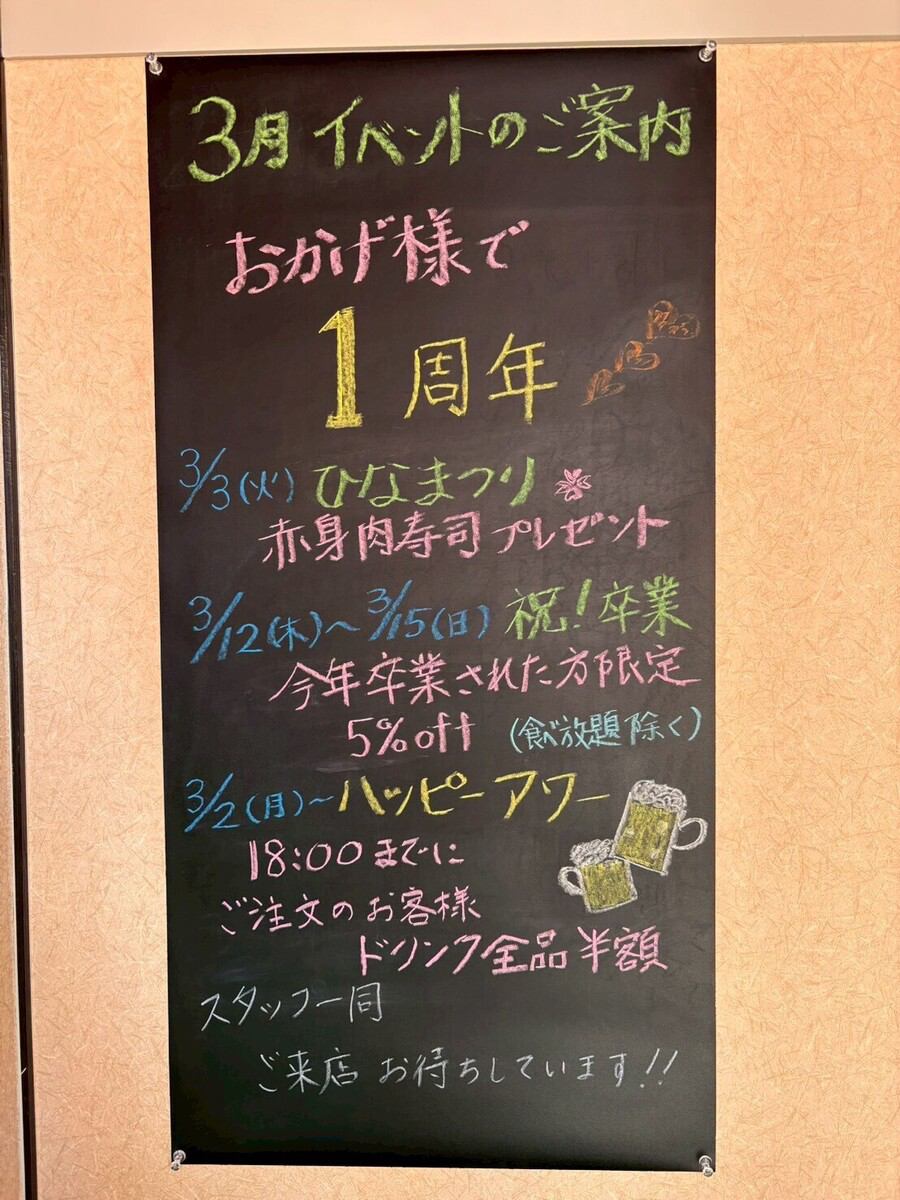 3月イベントのご案内
おかげ様で
1周年
3/3(火) ひなまつり
赤身肉寿司プレゼント
3/12(木)～3/15(日) 祝!卒業
今年卒業された方限定
5%off (食べ放題除く)
3/2(月)～ハッピーアワー
18:00までに
ご注文のお客様
ドリンク全品半額
スタッフ一同
ご来店お待ちしています!!